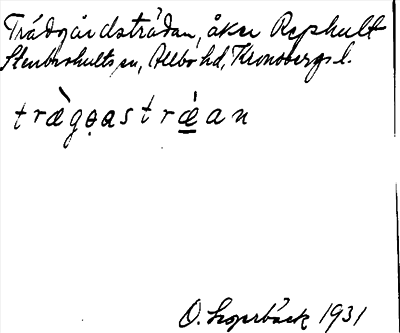 Trädgårdsträdan, åker Rephult
Stenbrohults sn, Allbo hd, Kronobergs l.
trægơastræan
O. 1931